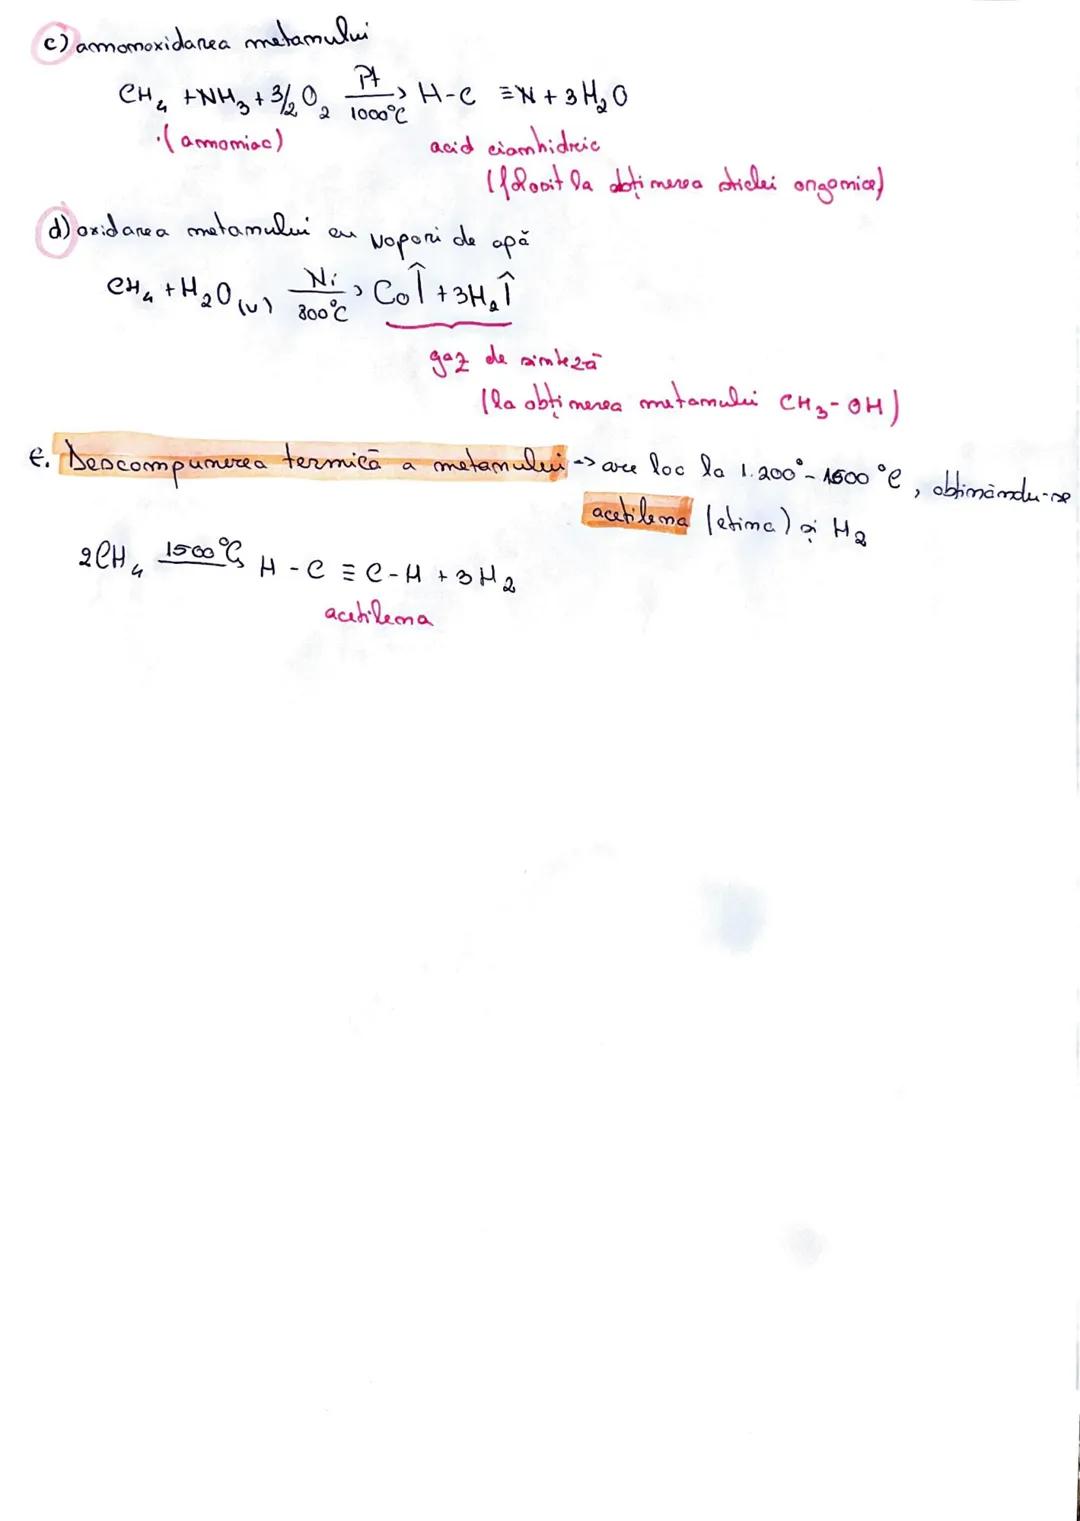 c) amonoxidarea metanului
CH₄ + NH₃ + 3/2 O₂ Pt/1000°C → H-C ≡ N + 3H₂O
(amoniac) acid cianhidric
(folosit la obținerea sticlei organice)
d) oxidarea metanului cu vapori de apă
CH₄ + H₂O(v) Ni/800°C → CO↑ + 3H₂↑
gaz de sinteză
(la obținerea metanului CH₃-OH)
E. Descompunerea termică a metanului -> are loc la 1.200° - 1500 °C, obținându-se
acetilena (etina) și H₂
2CH₄ 1500°C → H - C ≡ C - H + 3H₂
acetilena